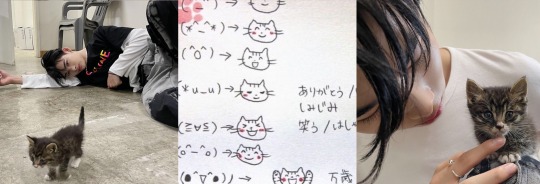 (*^_^*)→
(^O^)→
*u_u)→ ありがとう/
しみじみ
(≡∀≡)→ 笑う/はしゃ
o^-^o)→
(●^▽^●)ノ→ 万歳